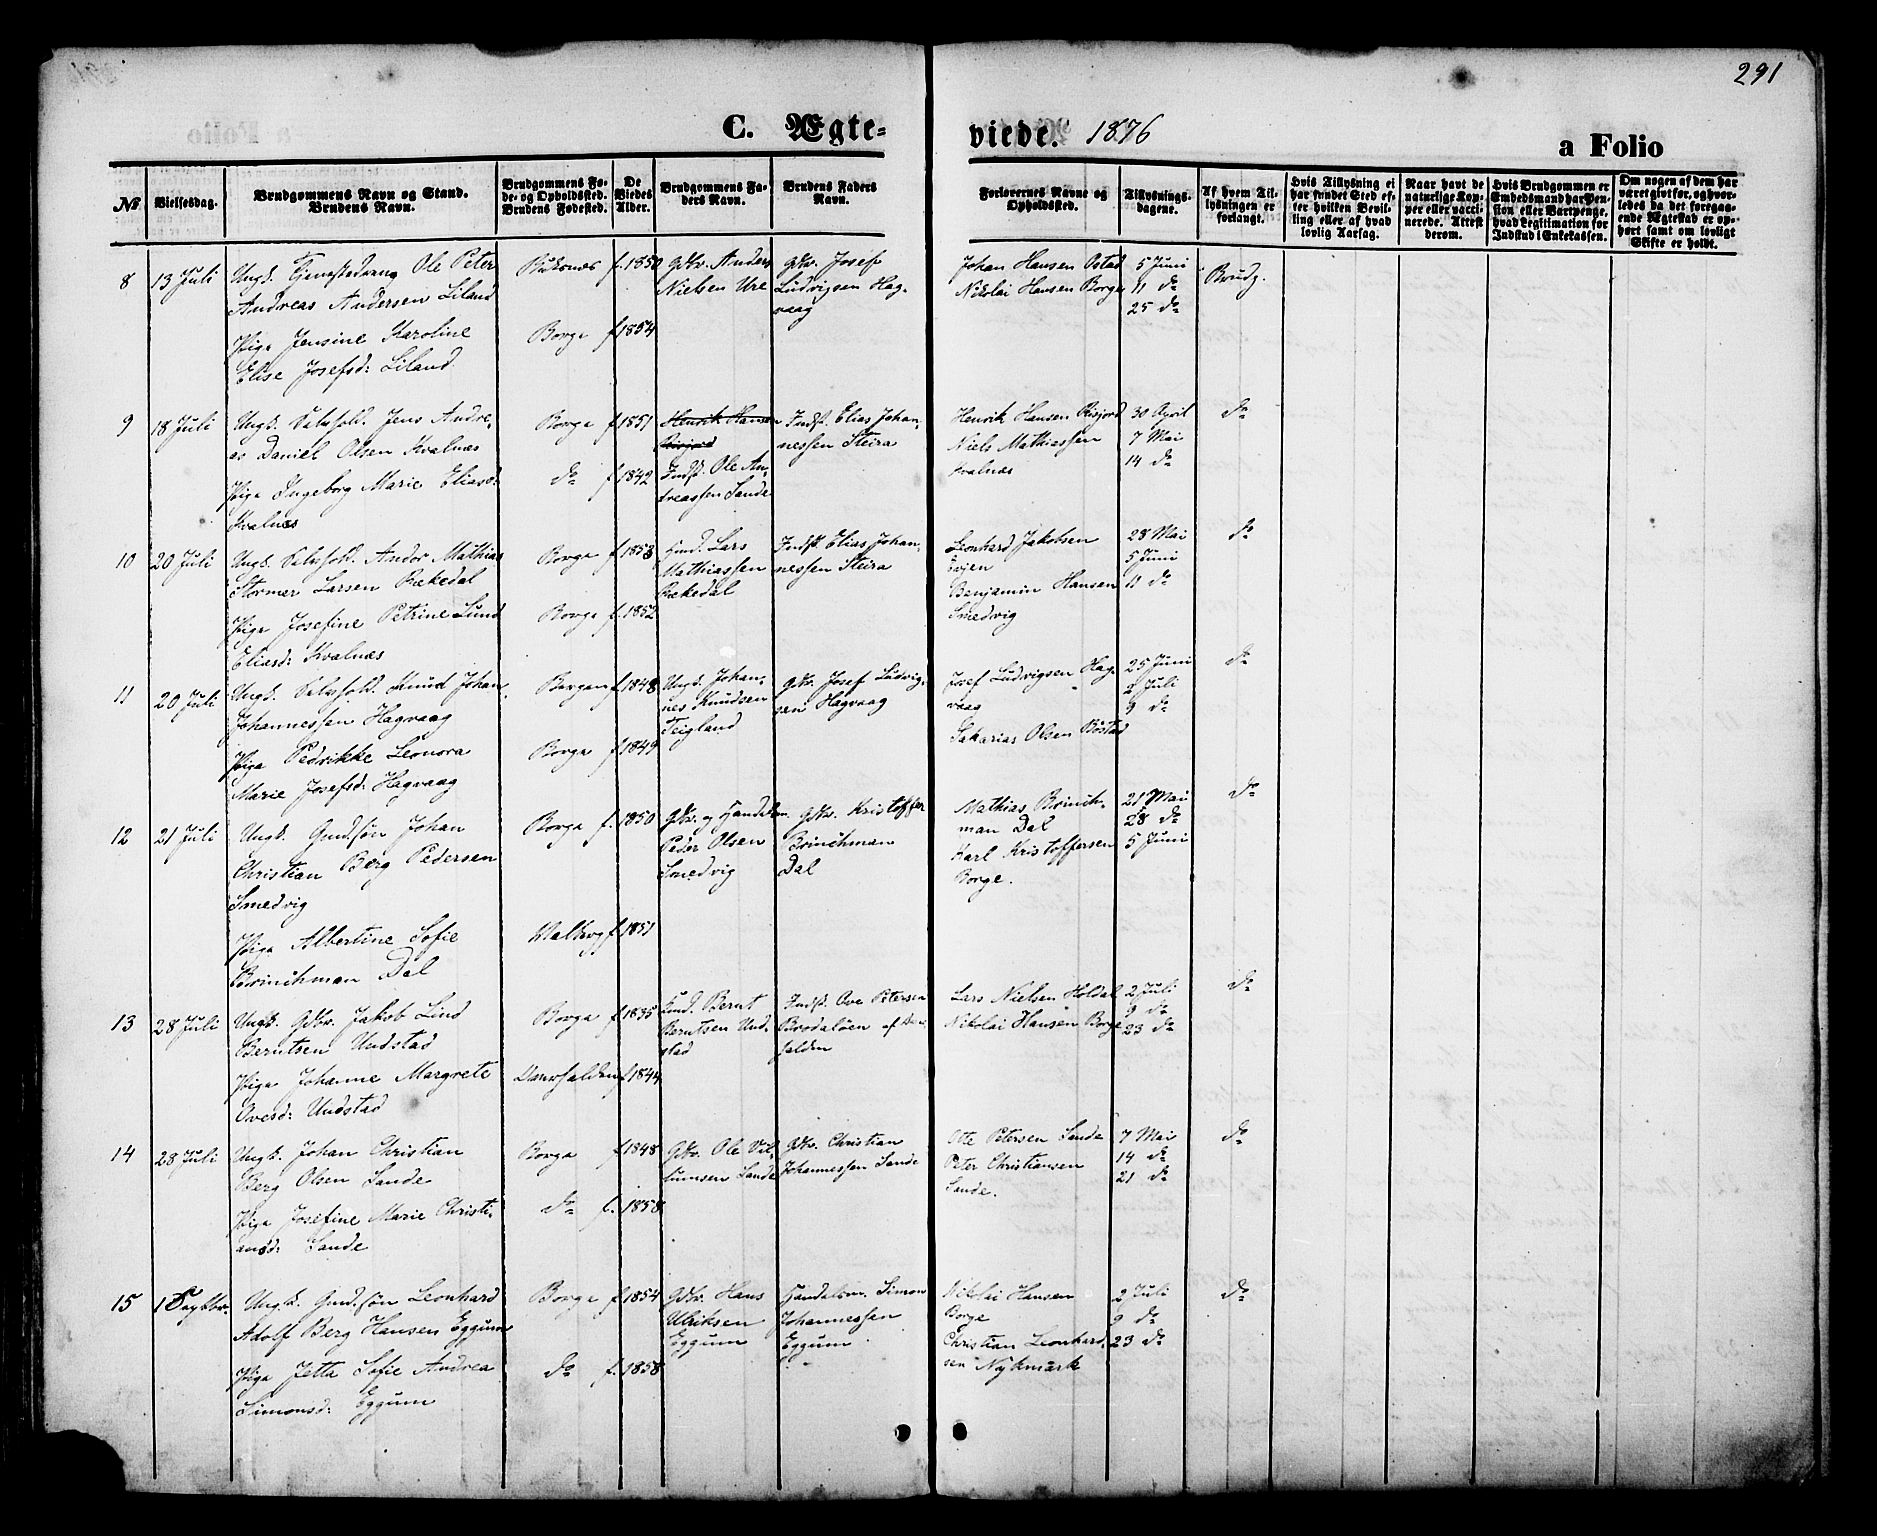 291
C. Ægte-
viede. 1876
a Folio
№
Vielsesdag.
Brudgommens Navn og Stand.
Brudens Navn.
Brudgommens Fø-
de- og Opholdssted.
Brudens Fødested.
De
Viedes
Alder.
Brudgommens Fa-
ders Navn.
Brudens Faders
Navn.
Forlovernes Navne og
Opholdssted.
Tillysnings-
dagene.
Af hvem Til-
lysningen er
forlangt.
Hvis Tillysning ei
har fundet Sted ef-
ter hvilken Bevil-
ling eller af hvad
lovlig Aarsag.
Naar havt de
naturlige Kop-
per eller vacci-
nerede. Attest
derom.
Hvis Brudgommen er
Embedsmand har Pen-
sion eller Vartpenge,
hvad Legitimation for
Indskud i Enkekassen.
Om nogen af dem har
været gift før, og hvor-
ledes da det foregaa-
ende Ægteskab er op-
hørt samt om lovligt
Skifte er holdt.
8
13 Juli
Ungk. Tjenstedræng Ole Peter
Andreas Andersen Liland
Pige Jensine Karoline
Elise Josefsd: Liland
Buksnes
Borge
f. 1850
f 1854
Gbr. Anders
Nielsen Ure
Gbr. Josef
Ludvigsen Hag-
vaag
Johan Hansen Bøstad
Nikolai Hansen Borge
5 Juni
11 do
25 do
Brudg.
9
18 Juli
Ungk. Selvhold. Jens Andre-
as Daniel Olsen Kvalnæs
Pige Ingeborg Marie Eliasd:
Kvalnæs
Borge
do
f 1851
f 1842
Henrik Hansen
Risjord
Indst. Ole An-
dreassen Sande
Indst. Elias Johan-
nessen Steira
Henrik Hansen Risjord
Niels Mathiassen
Kvalnæs
30 April
7 Mai
14 do
do
10
20 Juli
Ungk. Selvhold. Andor Mathias
Stormer Larsen Rekedal
Pige Josefine Petrine Lund
Eliasd: Kvalnæs
Borge
Borge
f 1853
f. 1852
Hmd. Lars
Mathiassen
Rekedal
Indst. Elias Johan-
nessen Steira
Leonhard Jakobsen
Evjen
Benjamin Hansen
Smedvig
28 Mai
5 Juni
11 do
do
11
20 Juli
Ungk. Selvhold. Knud Johan
Johannessen Hagvaag
Pige Pedrikke Leonora
Marie Josefsd: Hagvaag
Bergen
Borge
f 1848
f 1849
Ungk. Johan-
nes Knudsen
Teigland
Gbr. Josef Ludvig-
sen Hagvaag
Josef Ludvigsen Hag-
vaag
Sakarias Olsen Bøstad
25 Juni
2 Juli
9 do
do
12
21 Juli
Ungk. Gmd.søn Johan
Christian Berg Pedersen
Smedvig
Pige Albertine Sofie
Brinchman Dal
Borge
Malkog
f. 1850
f. 1851
Gbr. og Handelsm.
Peder Olsen
Smedvig
Gbr. Kristoffer
Brinchman
Dal
Mathias Brinch-
man Dal
Karl Kristoffersen
Borge.
21 Mai
28 do
5 Juni
do
13
28 Juli
Ungk. Gbr. Jakob Lind
Berntsen Undstad
Pige Johanne Margrete
Ovesd: Undstad
Borge
f 1835
f 1844
Hmd. Bernt
Berntsen Und-
stad
Indst. Ove Petersen
Lars Nielsen Holdal
Nikolai Hansen Borge
2 Juli
9 do
23 do
do
14
28 Juli
Ungk. Johan Christian
Berg Olsen Sande
Pige Josefine Marie Christi-
ansd: Sande
Borge
do
f 1848
f. 1858
Gbr. Ole Vil-
lumsen Sande
Gbr. Christian
Johannessen Sande
Otte Petersen Sande
Peter Christiansen
Sande.
7 Mai
14 do
21 do
do
15
1 Septbr.
Ungk. Gmd.søn Leonhard
Adolf Berg Hansen Eggum
Pige Jetta Sofie Andrea
Simonsd: Eggum
Borge
do
f 1854
f. 1858
Gbr. Hans
Ulriksen
Eggum
Handelsm. Simon
Johannessen
Eggum
Nikolai Hansen
Borge
Christian Leonhard-
sen Nykmark
2 Juli
9 do
23 do
do